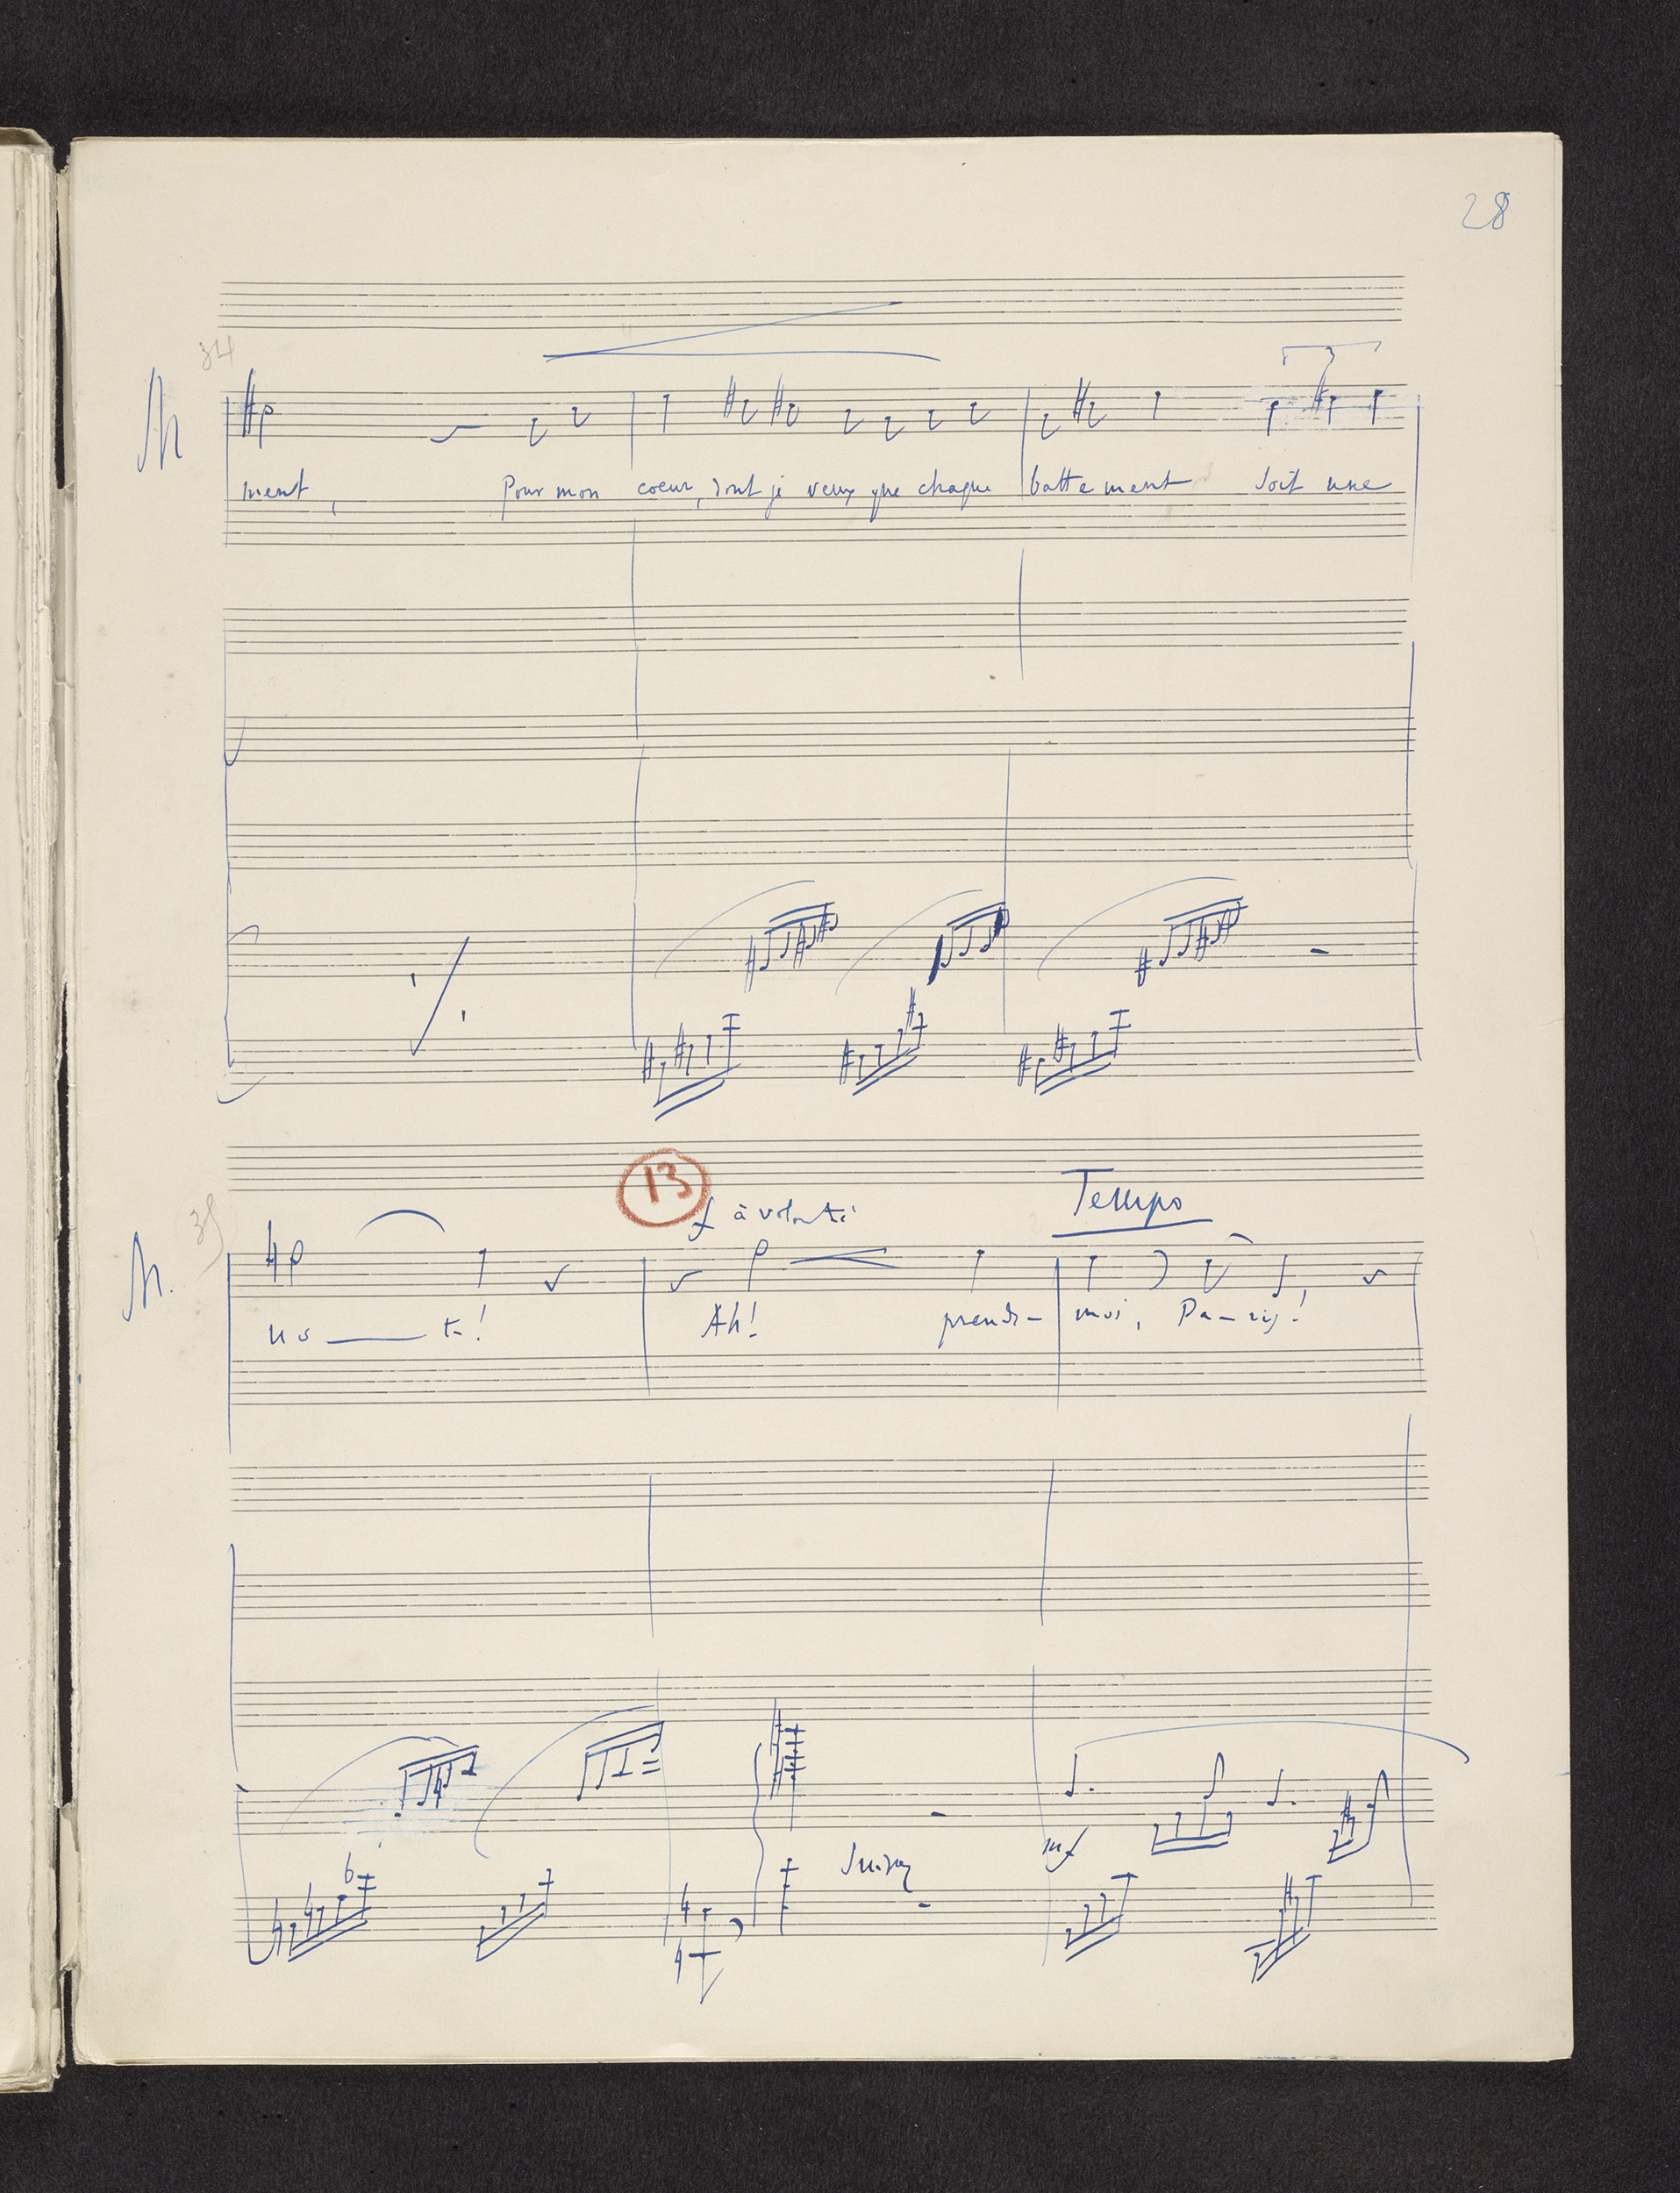 28
34
M
ment, Pour mon coeur, dont je veux que chaque battement soit une
3
13
f à volonté
Tempo
M.
no — te! Ah! prends- moi, Pa-ris!
mf
Suivez